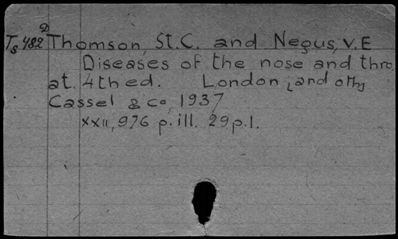 D
Ts 482 Thomson, St. C. and Negus, V. E
Diseases of the nose and thro
at. 4th ed. London, and oth,
Cassel & co, 1937
xxii, 976 p. ill. 29 p.l.